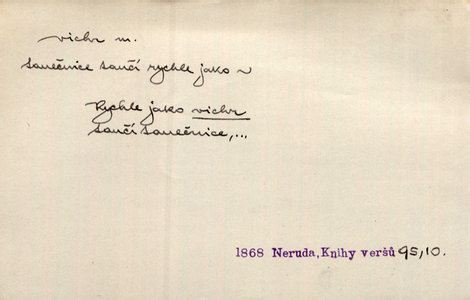 vichr m.
Saněčnice sančí rychle jako ~
Rychle jako vichr
sančí saněčnice,...
1868 Neruda, Knihy veršů 95,10.